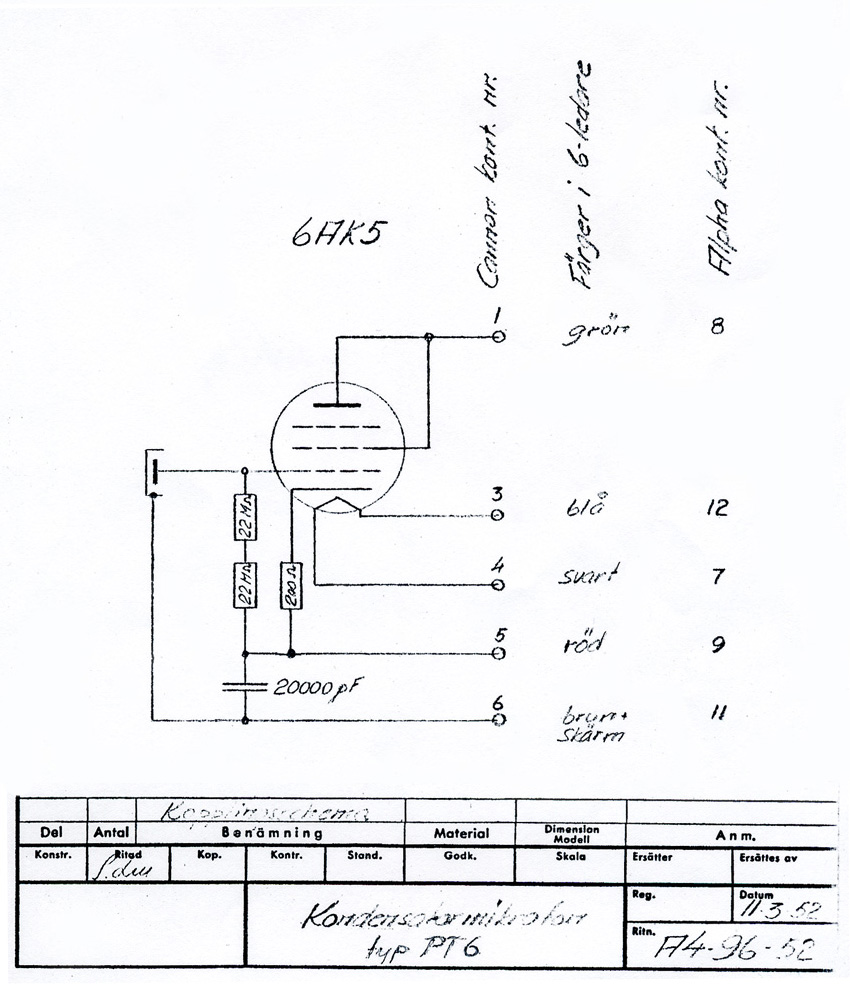 Cannon kont. nr.
Färger i 6-ledare
Alpha kont. nr.
6AK5
1 grön 8
3 blå 12
22 MΩ
4 svart 7
22 MΩ
200 Ω
5 röd 9
20000 pF
6 brun + 11
skärm
Kopplingsschema
Del Antal Benämning Material Dimension Modell Anm.
Konstr. Ritad Kop. Kontr. Stand. Godk. Skala Ersätter Ersättes av
Reg. Datum
11.3.52
Kondensatormikrofon
typ PT6
Ritn.
A4-96-52